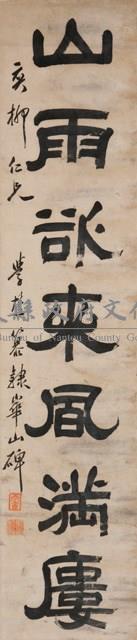 山雨欲來風滿廔
柳仁兄
學 隸華山碑
縣政府文化
ureau of Nantou County Go